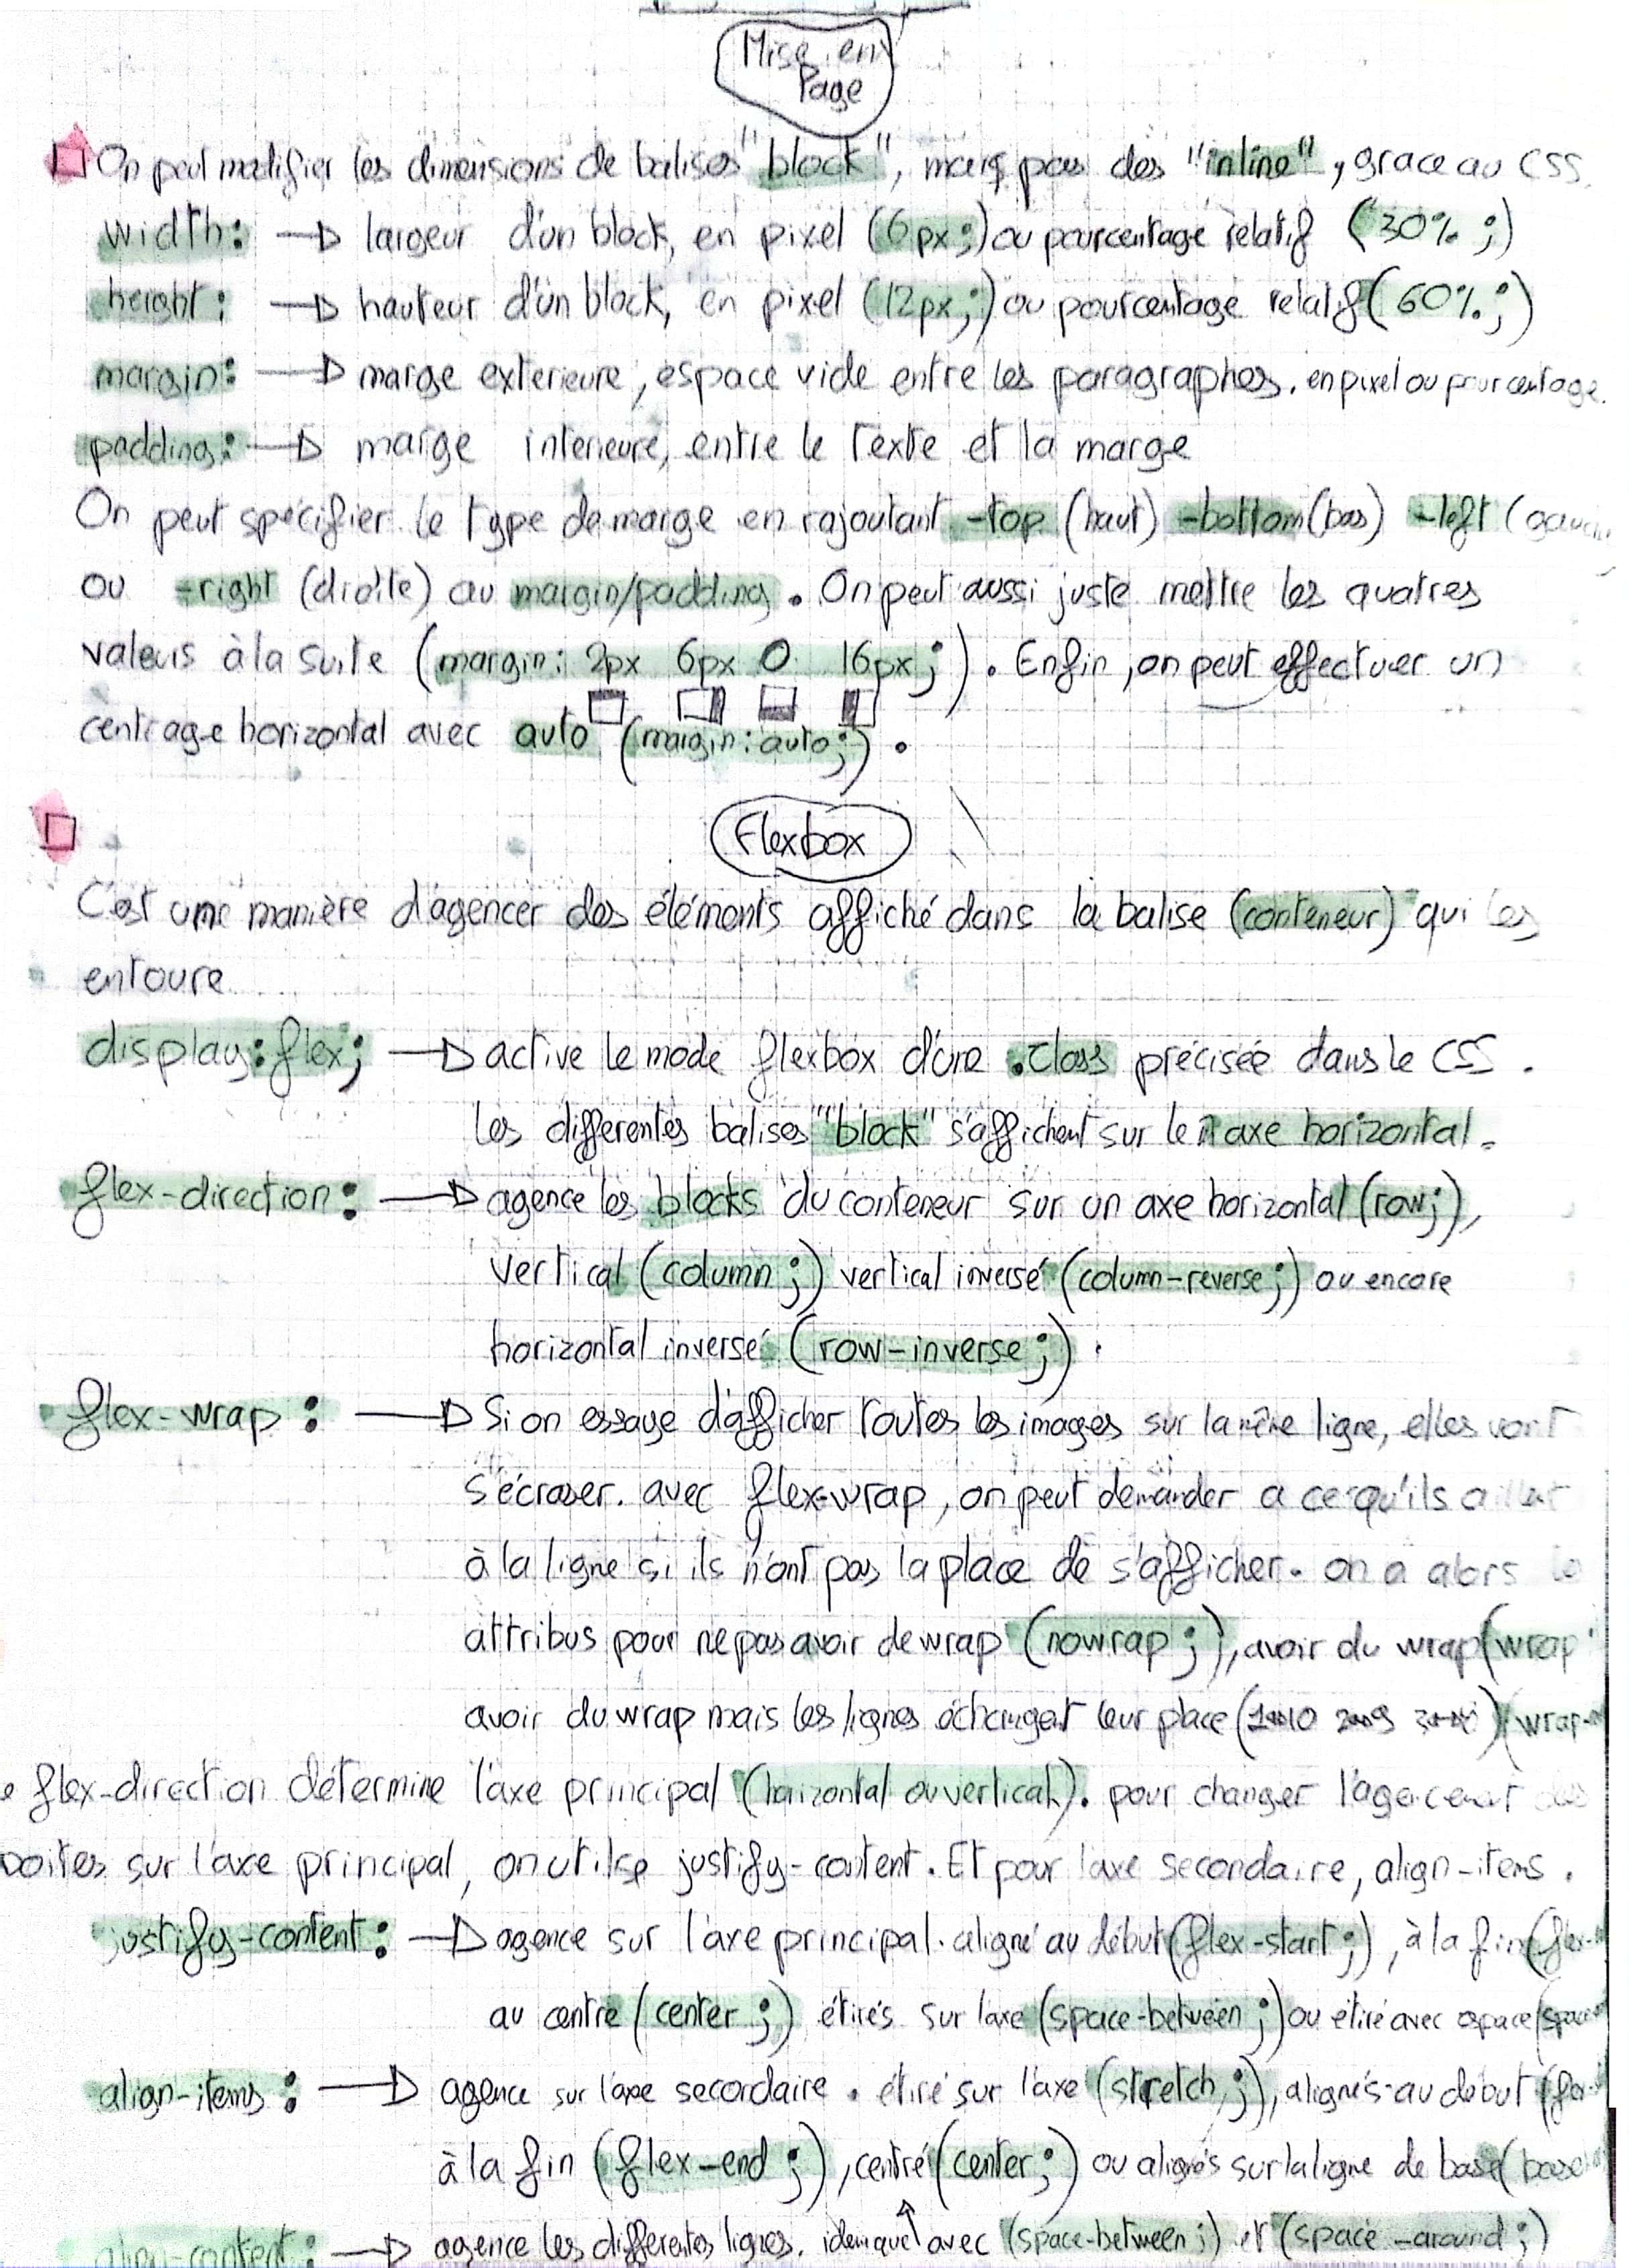 Mise en
Page
On peut modifier les dimensions de balises "block", mais pas des "inline", grace au CSS.
width: → largeur d'un block, en pixel (6px;) ou pourcentage relatif (30%;)
height: → hauteur d'un block, en pixel (12px;) ou pourcentage relatif (60%;)
margin: → marge exterieure, espace vide entre les paragraphes. en pixel ou pourcentage.
padding: → marge interieure, entre le texte et la marge
On peut spécifier le type de marge en rajoutant -top (haut) -bottom (bas) -left
ou -right (droite) au margin/padding. On peut aussi juste mettre les quatres
valeurs à la suite (margin: 2px 6px 0 16px;). Enfin, on peut effectuer un
centrage horizontal avec auto (margin: auto;).
Flexbox
C'est une manière d'agencer des éléments affiché dans la balise (conteneur) qui les
entoure
display: flex; → active le mode flexbox d'une .class précisée dans le CSS.
Les differentes balises "block" s'affichent sur le axe horizontal.
flex-direction: → agence les blocks du conteneur sur un axe horizontal (row;),
vertical (column;) vertical inversé (column-reverse;) ou encore
horizontal inversé (row-inverse;).
flex-wrap: → Si on essaye d'afficher toutes les images sur la même ligne, elles vont
s'écraser. avec flex-wrap, on peut demander a ce qu'ils aillent
à la ligne si ils n'ont pas la place de s'afficher. on a alors
attribus pour ne pas avoir de wrap (nowrap;), avoir du wrap (wrap
avoir du wrap mais les lignes échangent leur place (wrap-
flex-direction détermine l'axe principal (horizontal ou vertical). pour changer l'agencement des
boites sur l'axe principal, on utilise justify-content. Et pour l'axe secondaire, align-items.
justify-content: → agence sur l'axe principal. aligné au début (flex-start;), à la fin (flex-
au centre (center;) étirés sur l'axe (space-between;) ou étiré avec espace (space
align-items: → agence sur l'axe secondaire. étiré sur l'axe (stretch;), alignés au debut
à la fin (flex-end;), centré (center;) ou alignés sur la ligne de base (base
align-content: → agence les differentes lignes. idem que ↑ avec (space-between;) et (space-around;)